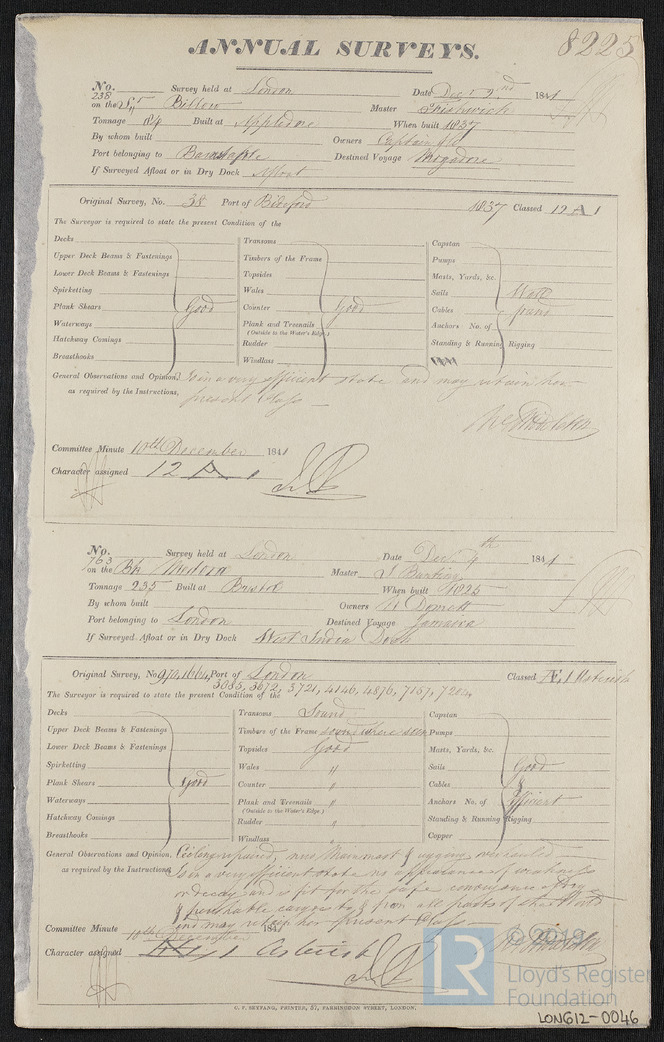 ANNUAL SURVEYS. 8225
No. 238 Survey held at London Date Decr 2nd 1841
on the Billow Master
Tonnage 84 Built at Appledore When built 1837
By whom built Owners Captain &Co
Port belonging to Barnstaple Destined Voyage Mogadore
If Surveyed Afloat or in Dry Dock Afloat
Original Survey, No. 38 Port of Bideford 1837 Classed 12 A 1
The Surveyor is required to state the present Condition of the
Decks
Upper Deck Beams & Fastenings
Lower Deck Beams & Fastenings
Spirketting
Plank Shears Good
Waterways
Hatchway Comings
Breasthooks
Transoms
Timbers of the Frame
Topsides
Wales
Counter Good
Plank and Treenails
(Outside to the Water's Edge.)
Rudder
Windlass
Capstan
Pumps
Masts, Yards, &c.
Sails Well
Cables found
Anchors No. of
Standing & Running Rigging
General Observations and Opinion, Is in a very efficient state and may retain her
as required by the Instructions, present Class
Committee Minute 10th December 1841
Character assigned 12 A 1
No. 763 Survey held at London Date Decr 4th 1841
on the Bk Medora Master J Bunting
Tonnage 235 Built at Bristol When built 1825
By whom built Owners W Domett
Port belonging to London Destined Voyage Jamaica
If Surveyed Afloat or in Dry Dock West India Dock
Original Survey, No 970, 1664, Port of London Classed Æ 1 Asterisk
3035, 3672, 3721, 4146, 4876, 7157, 7204,
The Surveyor is required to state the present Condition of the
Decks
Upper Deck Beams & Fastenings
Lower Deck Beams & Fastenings
Spirketting
Plank Shears Good
Waterways
Hatchway Comings
Breasthooks
Transoms Sound
Timbers of the Frame sound where seen
Topsides Good
Wales "
Counter "
Plank and Treenails "
(Outside to the Water's Edge.)
Rudder "
Windlass "
Capstan
Pumps
Masts, Yards, &c.
Sails Good
Cables &
Anchors No. of efficient
Standing & Running Rigging
Copper
General Observations and Opinion, Ceiling repaired, new Mainmast & rigging overhauled
as required by the Instructions, Is in a very efficient state no appearance of weakness
or decay and is fit for the safe conveyance of dry
& perishable cargoes to & from all parts of the World
and may retain her present Class
Committee Minute 10th December 1841
Character assigned Æ 1 Asterisk
© 2019
LR
Lloyd's Register
Foundation
C. F. SEYFANG, PRINTER, 57, FARRINGDON STREET, LONDON.
LON612-0046